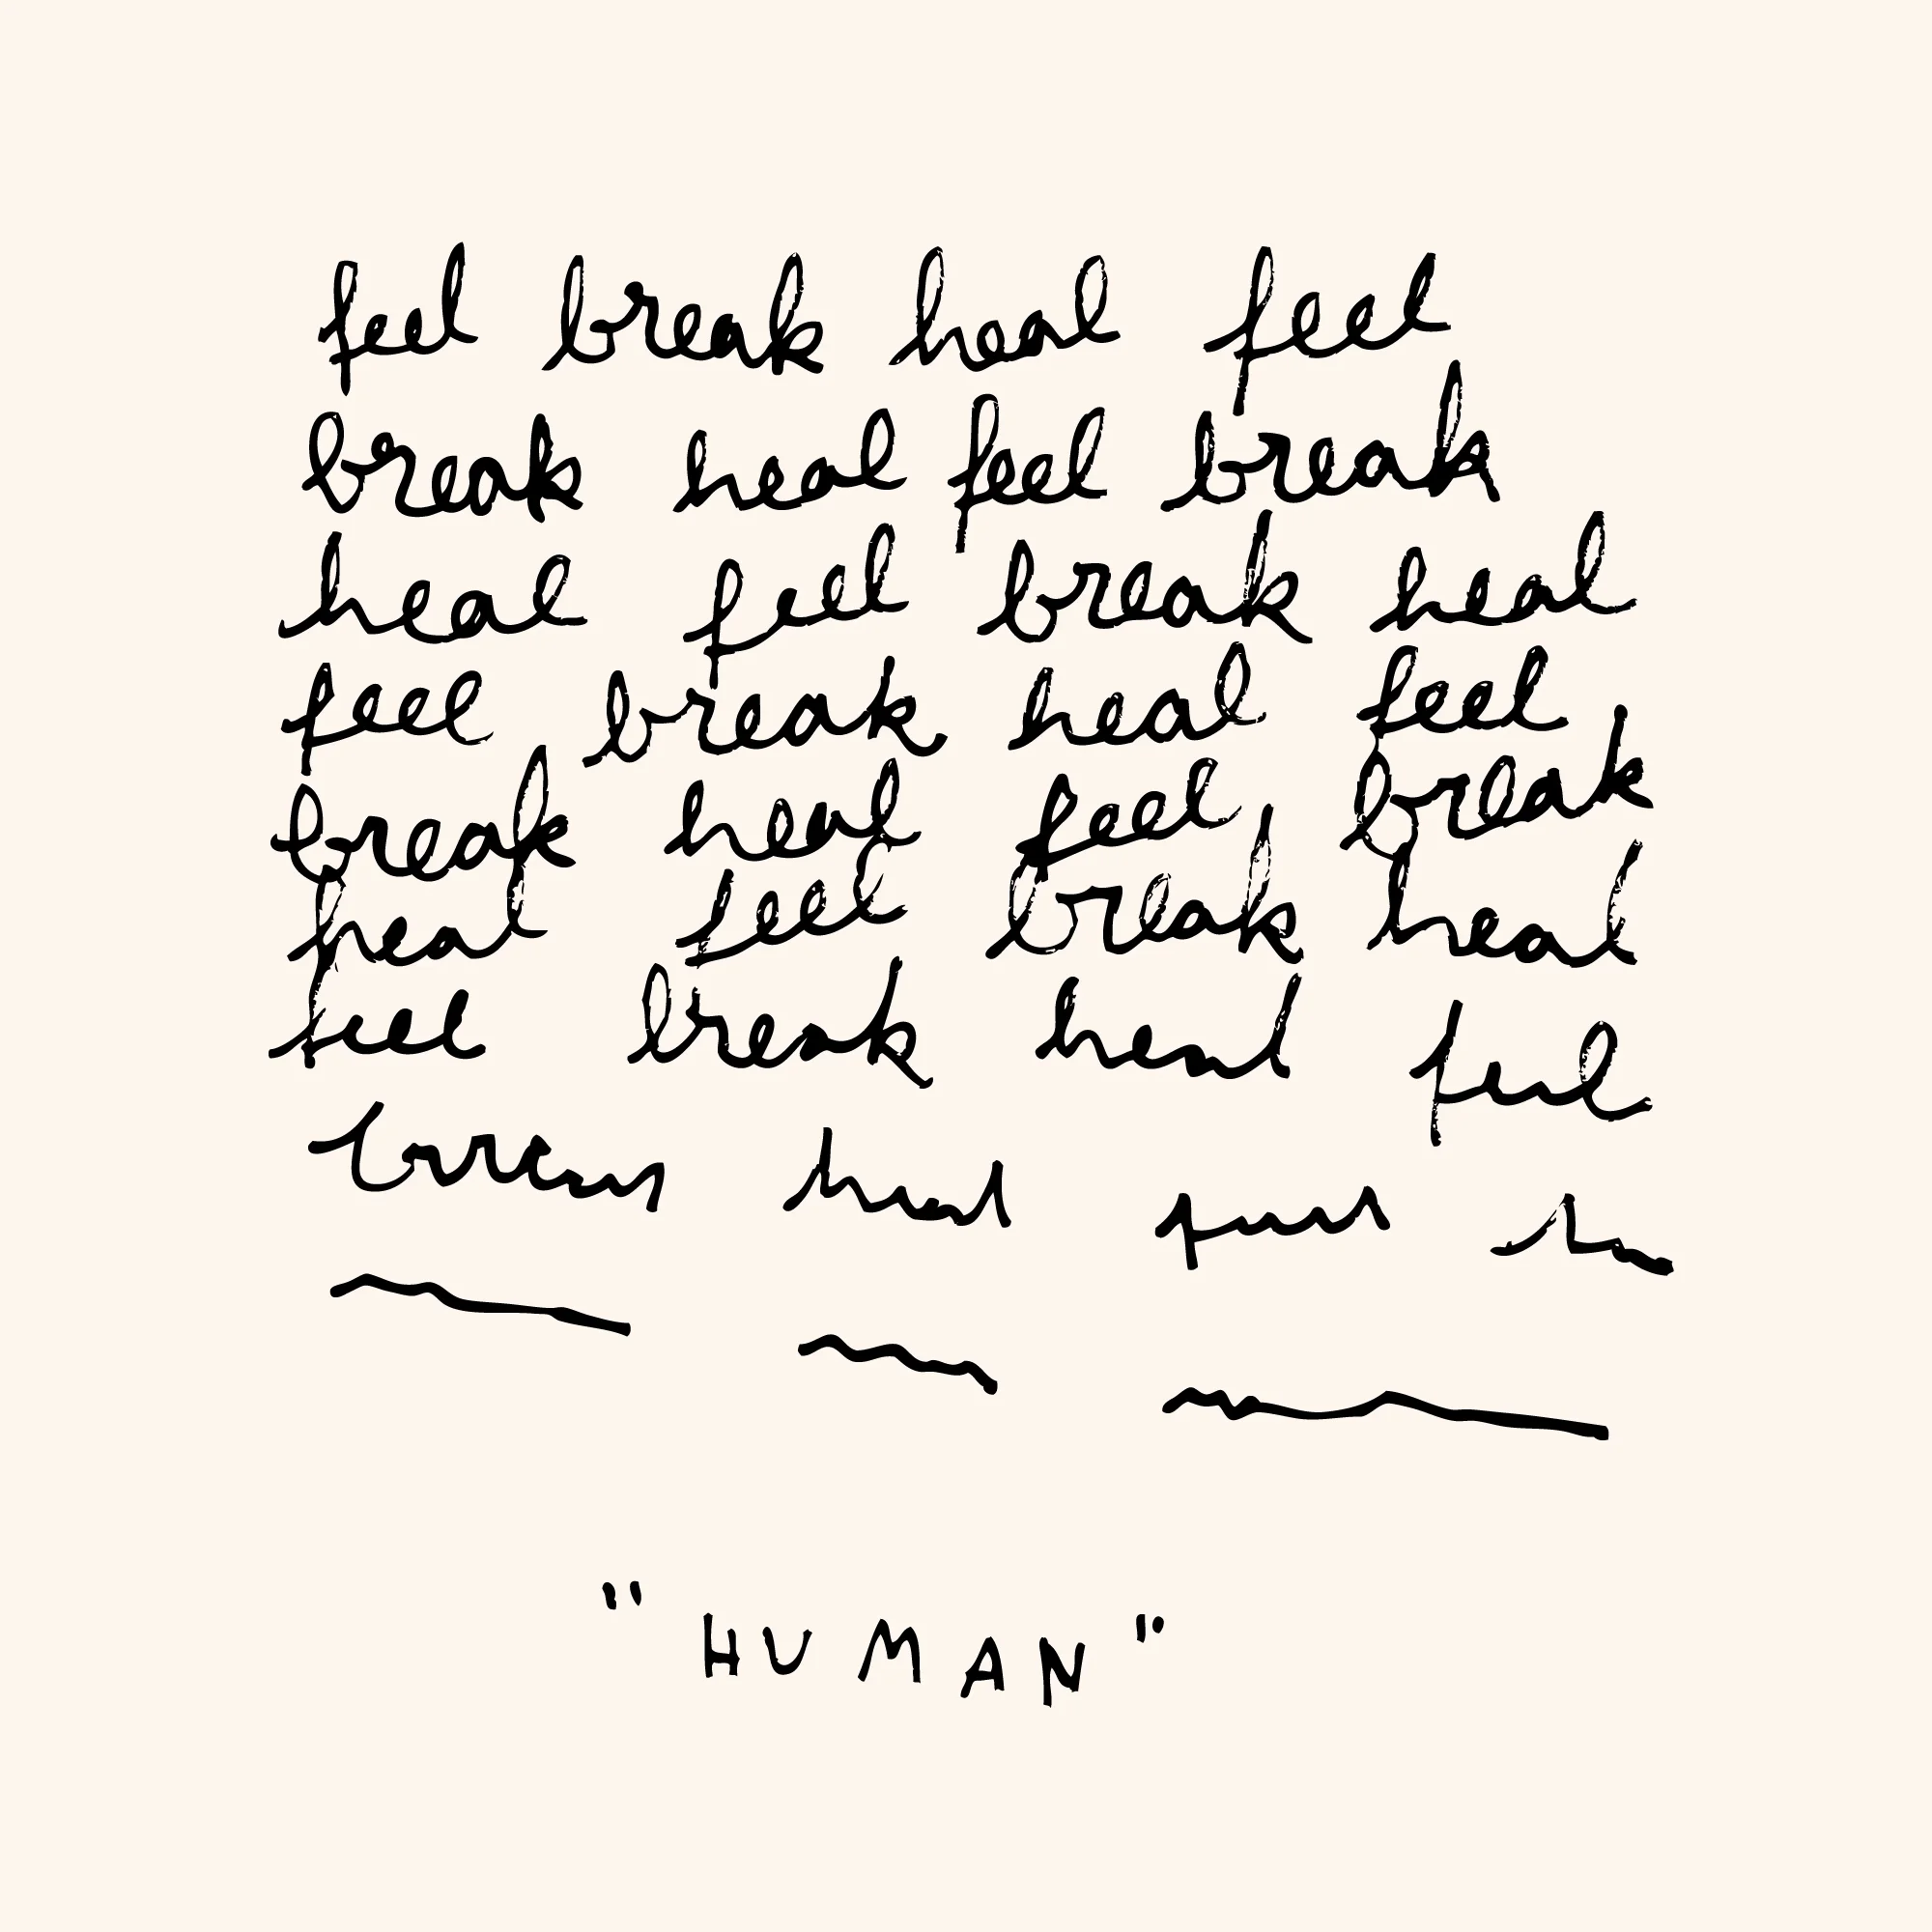 feel break heal feel
break heal feel break
heal feel break heal
feel break heal feel
break heal feel break
heal feel break heal
feel break heal feel
"HUMAN"